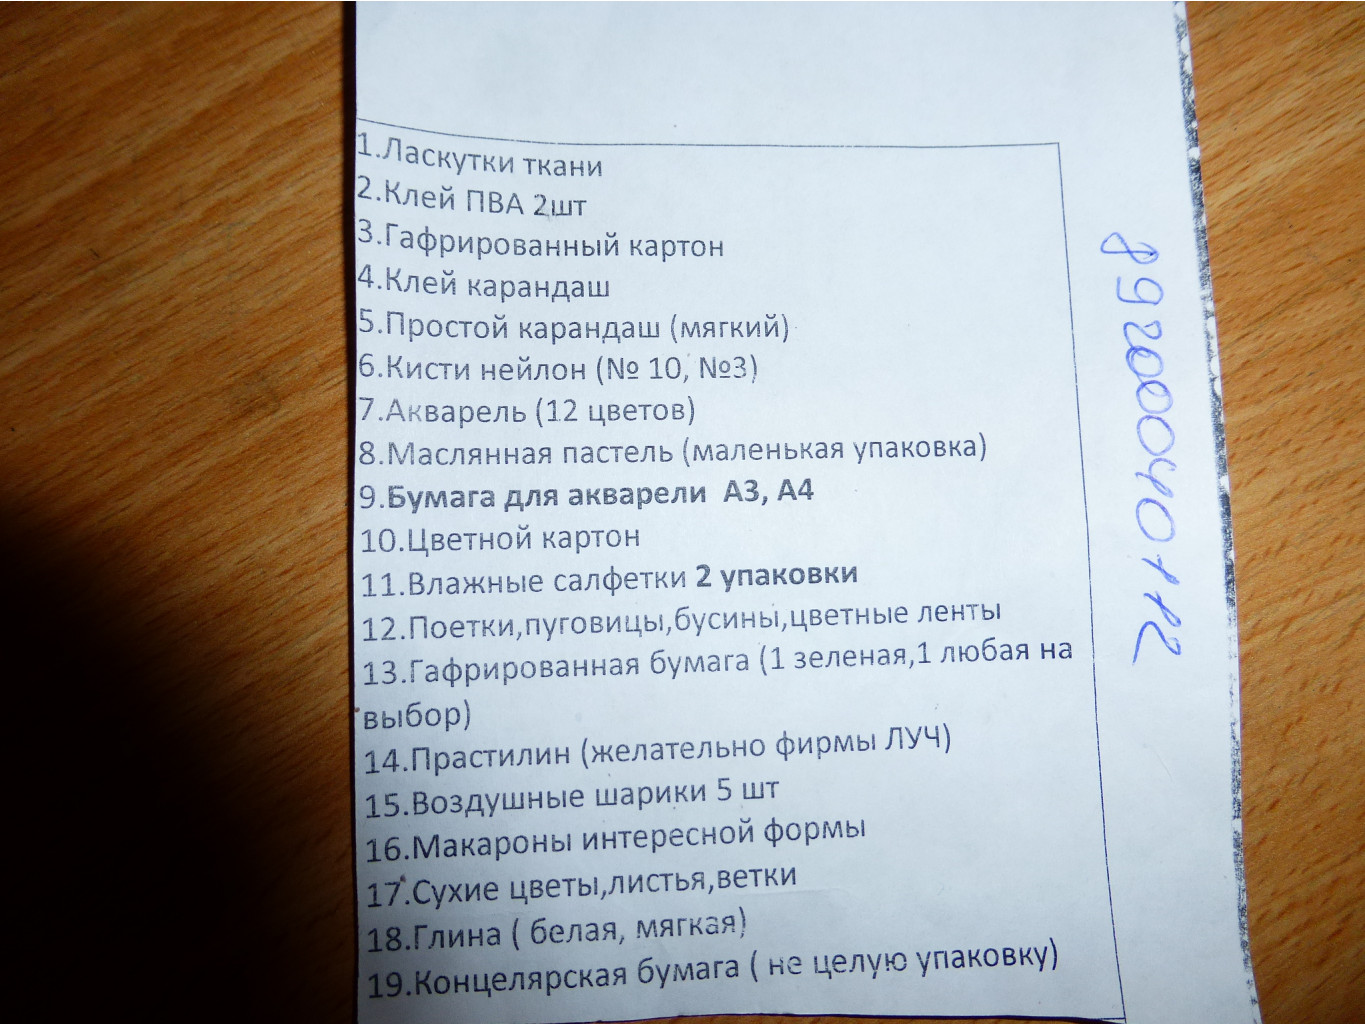 1.Ласкутки ткани
2.Клей ПВА 2шт
3.Гафрированный картон
4.Клей карандаш
5.Простой карандаш (мягкий)
6.Кисти нейлон (№ 10, №3)
7.Акварель (12 цветов)
8.Маслянная пастель (маленькая упаковка)
9.Бумага для акварели  А3, А4
10.Цветной картон
11.Влажные салфетки 2 упаковки
12.Поетки,пуговицы,бусины,цветные ленты
13.Гафрированная бумага (1 зеленая,1 любая на
выбор)
14.Прастилин (желательно фирмы ЛУЧ)
15.Воздушные шарики 5 шт
16.Макароны интересной формы
17.Сухие цветы,листья,ветки
18.Глина ( белая, мягкая)
19.Концелярская бумага ( не целую упаковку)